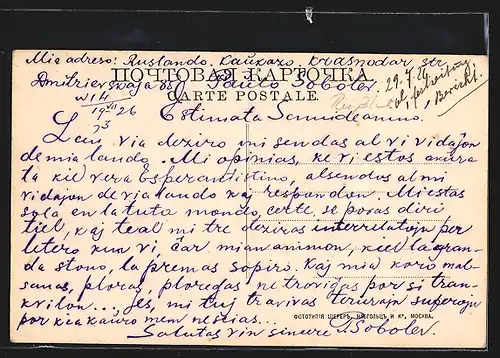 Mia adreso: Ruslando. Kaŭkazo. Krasnodar str.
Dmitrievskaja 85 Paŭlo Sobolev.
ПОЧТОВАЯ КАРТОЧКА.
CARTE POSTALE.
W 14
19 VII 26
23
29.7.26
Bericht.
Estimata Samideanino.
Laŭ via deziro mi sendas al vi vidaĵon
de mia lando. Mi opinias, ke vi estos akura
ta kiel vera Esperantistino, alsendos al mi
vidaĵon de via lando kaj respondon. Mi estas
sola en la tuta mondo, certe, se povas diri
tiel, kaj teal mi tre deziras interrilatojn per
litero kun vi, ĉar mian animon, kiel la gran-
da ŝtono, la premas sopiro. Kaj mia koro mal-
sanas, ploras, ploregas ne trovigas por si tran-
kvilon... Jes, mi tuj travivas teruran suferojn
por kia kaŭzo mem nescias...
Salutas vin sincere PSobolev.
ФОТОТИПІЯ ШЕРЕРЪ, НАБГОЛЬЦЪ И Кº, МОСКВА.